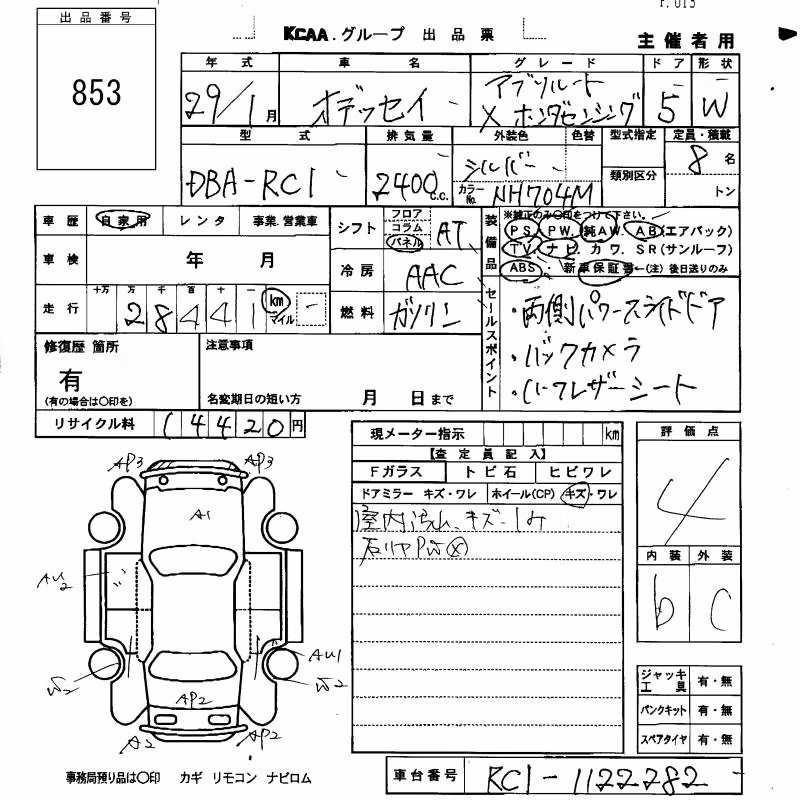 P.015
出品番号
853
KCAA.グループ 出品票
主催者用
年式 車名 グレード ドア 形状
29/1月 オデッセイ アブソルート X ホンダセンシング 5 W
型式 排気量 外装色 色替 型式指定 定員・積載
DBA-RC1 2400c.c. シルバー 類別区分 8名
カラーNo. NH704M トン
車歴 自家用 レンタ 事業.営業車
車検 年 月
走行 十万 万 千 百 十 一
28441 km マイル
シフト フロア コラム パネル AT
冷房 AAC
燃料 ガソリン
装備品
※純正のみ○印をつけて下さい。
PS. PW. 純AW. AB(エアバック)
TV. ナビ. カワ. SR(サンルーフ)
ABS・新車保証書←(注)後日送りのみ
セールスポイント
・両側パワースライドドア
・バックカメラ
・ハーフレザーシート
修復歴 箇所
有
(有の場合は○印を)
注意事項
名変期日の短い方 月 日まで
リサイクル料 14420円
現メーター指示 km
【査定員記入】
Fガラス トビ石 ヒビワレ
ドアミラー キズ・ワレ ホイール(CP) キズ・ワレ
室内汚れ、キズ・シミ
右リヤPW
評価点
4
内装 外装
b C
AP3 AP3
A1
AU2
AU1
W2 W2
AP2
A2 AP2
ジャッキ工具 有・無
パンクキット 有・無
スペアタイヤ 有・無
事務局預り品は○印 カギ リモコン ナビロム
車台番号 RC1-1122282